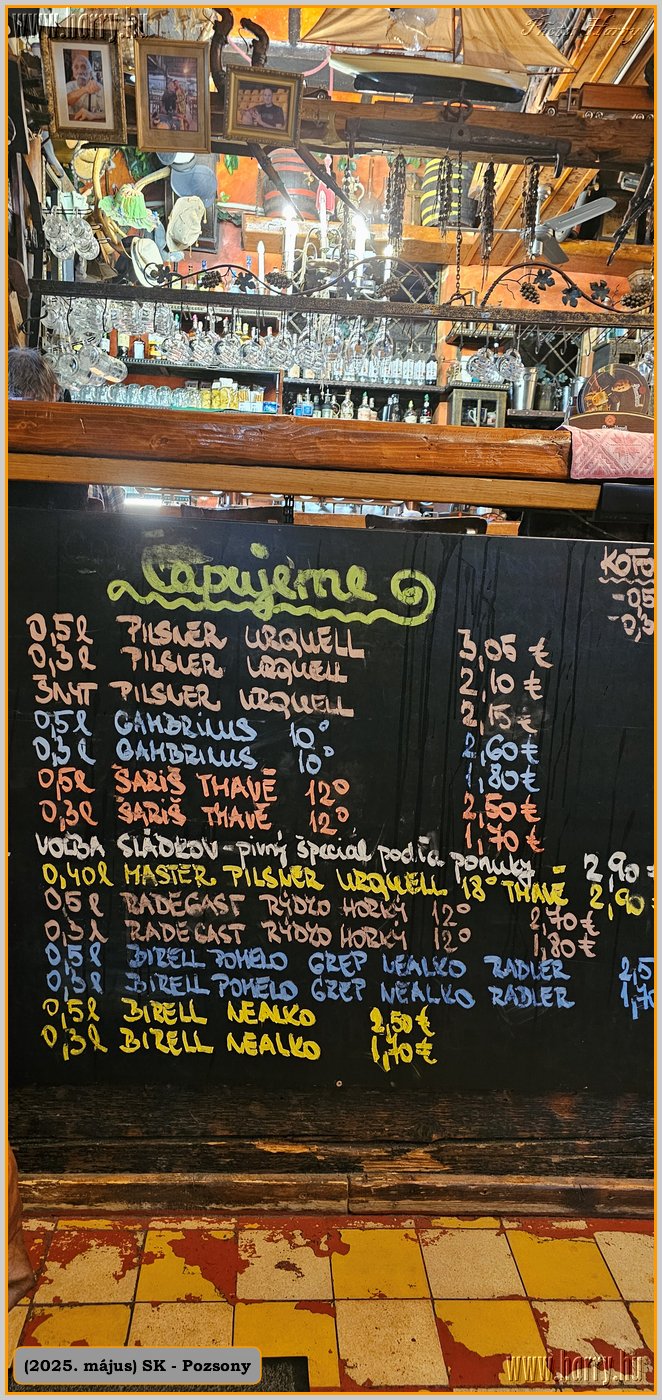 www.horry.hu
Photo: Horry
Čapujeme
0,5l PILSNER URQUELL 3,05 €
0,3l PILSNER URQUELL 2,10 €
ŠNYT PILSNER URQUELL 2,15 €
0,5l GAMBRINUS 10° 2,60 €
0,3l GAMBRINUS 10° 1,80 €
0,5l ŠARIŠ TMAVÉ 12° 2,50 €
0,3l ŠARIŠ TMAVÉ 12° 1,70 €
VOĽBA SLÁDKOV - pivný špeciál podľa ponuky 2,90 €
0,40l MASTER PILSNER URQUELL 18° TMAVÉ 2,90
0,5l RADEGAST RÝDZO HORKÝ 12° 2,70 €
0,3l RADEGAST RÝDZO HORKÝ 12° 1,80 €
0,5l BIRELL POMELO GREP NEALKO RADLER 2,5
0,3l BIRELL POMELO GREP NEALKO RADLER 1,70
0,5l BIRELL NEALKO 2,50 €
0,3l BIRELL NEALKO 1,70 €
KOFO
-0,5
-0,3
(2025. május) SK - Pozsony
www.horry.hu